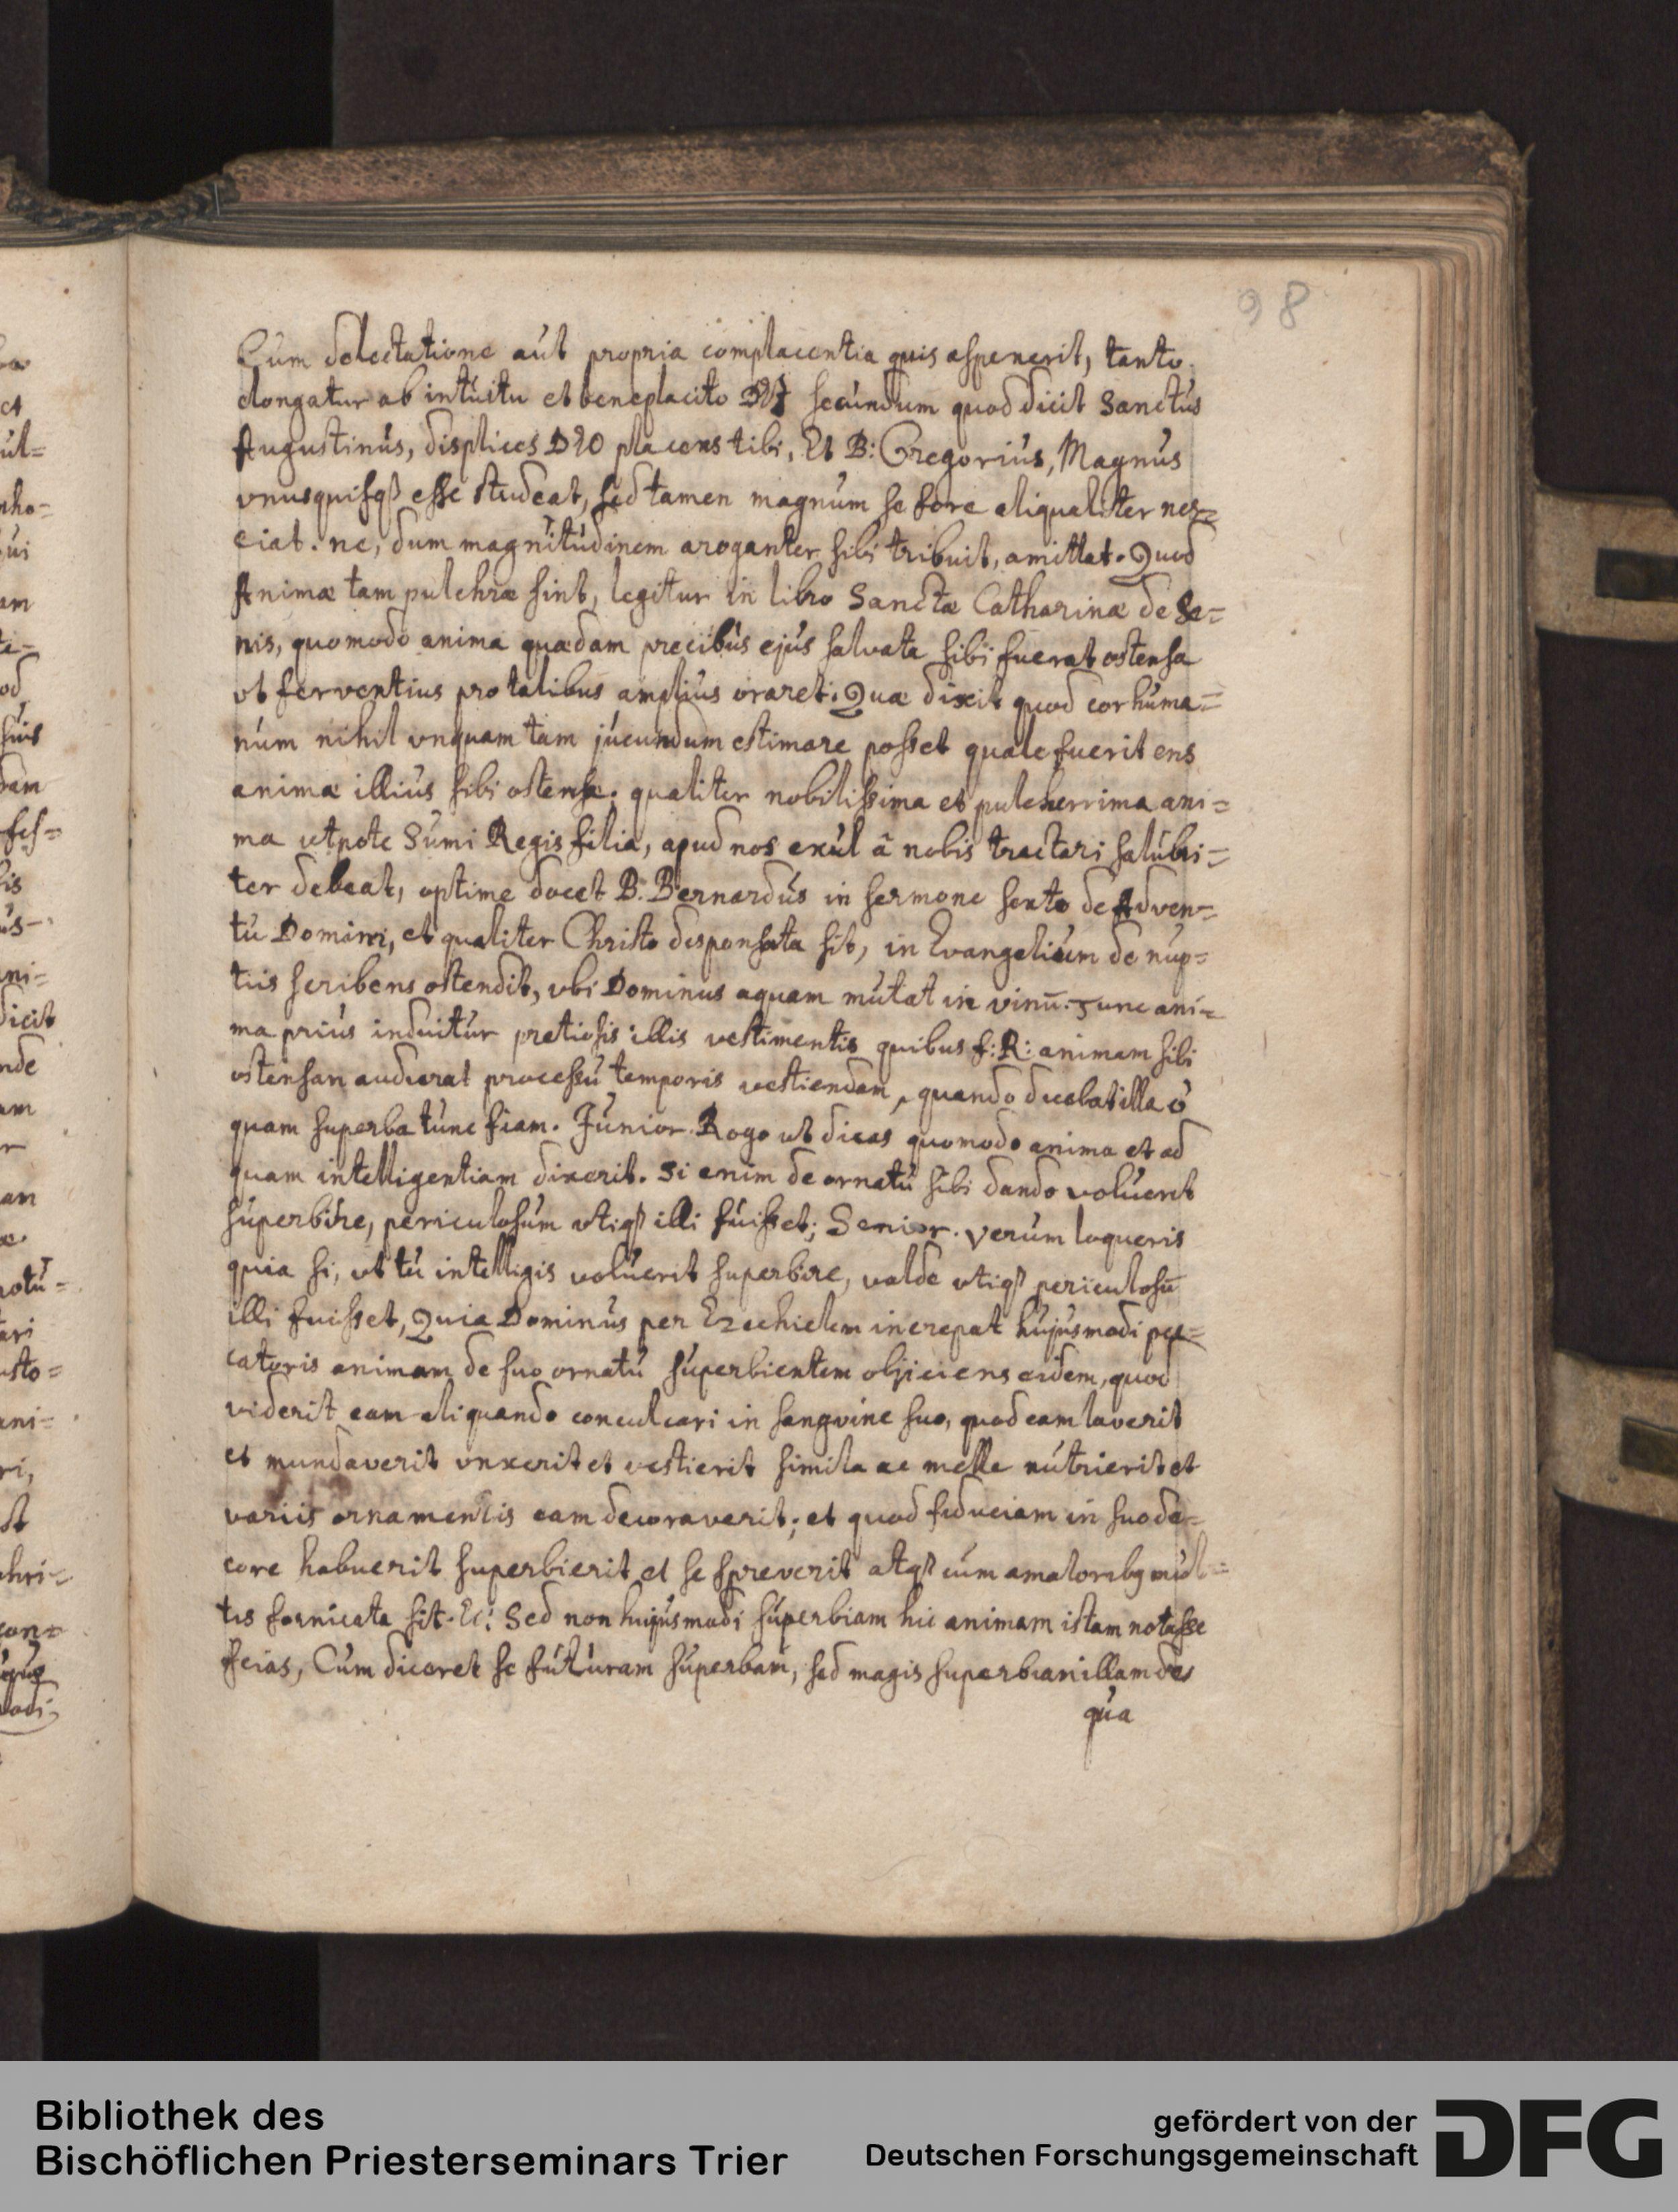 98
Cum delectatione aut propria complacentia quis aspexerit, tanto
elongatur ab intuitu et beneplacito DEI secundum quod dicit Sanctus
Augustinus, displices DEO placens tibi, Et B: Gregorius, Magnus
vnusquisqß esse studeat, sed tamen magnum se fore aliqualiter nes=
ciat. ne, dum magnitudinem aroganter sibi tribuit, amittat. Quod
Animæ tam pulchræ sint, legitur in libro Sanctæ Catharinæ de Se=
nis, quomodo anima quædam precibus ejus salvata sibi fuerat ostensa
vt ferventius pro talibus amplius oraret. Quæ dixit quod cor huma=
num nihil vnquam tam jucundum estimare posset quale fuerit ens
animæ illius sibi ostensæ. qualiter nobilissima et pulcherrima ani=
ma utpote Sumi Regis filia, apud nos exul â nobis tractari salubri=
ter debeat, optime docet B. Bernardus in sermone sexto de Adven=
tu Domini, et qualiter Christo desponsata sit, in Evangelium de nup=
tiis scribens ostendit, vbi Dominus aquam mutat in vinū. Tunc ani=
ma prius induitur pretiosis illis vestimentis quibus f: R: animam sibi
ostensan audierat processu temporis vestiendam, quando dicebat illa ô
quam superba tunc fiam. Junior. Rogo ut dicas quomodo anima et ad
quam intelligentiam dixerit. Si enim de ornatu sibi dando voluerit
superbire, periculosum vtiqß illi fuisset; Senior. Verum loqueris
quia si, ut tu intelligis voluerit superbire, valde vtiqß periculosū
illi fuisset, Quia Dominus per Ezechielem increpat hujusmodi pec=
catoris animam de suo ornatu superbientem objiciens eidem, quod
viderit eam aliquando conculcari in sangvine suo, quod eam laverit
et mundaverit vnxerit et vestierit simila ac melle nutrierit et
variis ornamentis eam decoraverit; et quod fiduciam in suo de=
core habuerit superbierit et se spreverit atqß cum amatoribg mul=
tis fornicata sit. Ec: Sed non hujusmodi superbiam hic animam istam notasse
scias, Cum diceret se futuram superbam, sed magis superbian illam de
qua
Bibliothek des
Bischöflichen Priesterseminars Trier
gefördert von der
Deutschen Forschungsgemeinschaft
DFG